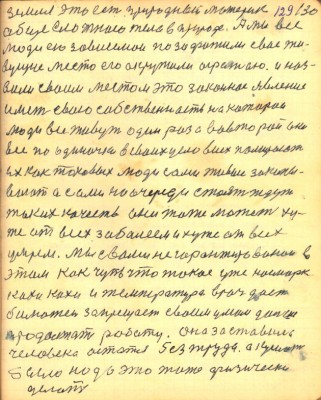 земля это есть природный материк 129/30
общесложного тела в природе. А мы все
люди его завоевали позагрожили свое жи-
вущие место его окружили огражою. и наз-
вали своим местом это законное явление
иметь свою собственность на которой
люди все живут один раз а во второй они
все по одиночки в своих условиях помирают
их как таковых люди сами живые закапы-
вают а сами на очереди стоят ждут
таких качеств они тоже может ху-
же от всех заболеем и хуже от всех
умрем. Мы с вами не гарантированы в
этом как чуть что такое уже насморк
кахи кахи и температура врач дает
билютень запрещает своем умом данным
продолжать работу. она заставила
человека остатся без труда. а кушать
было надо это тоже физически
делать